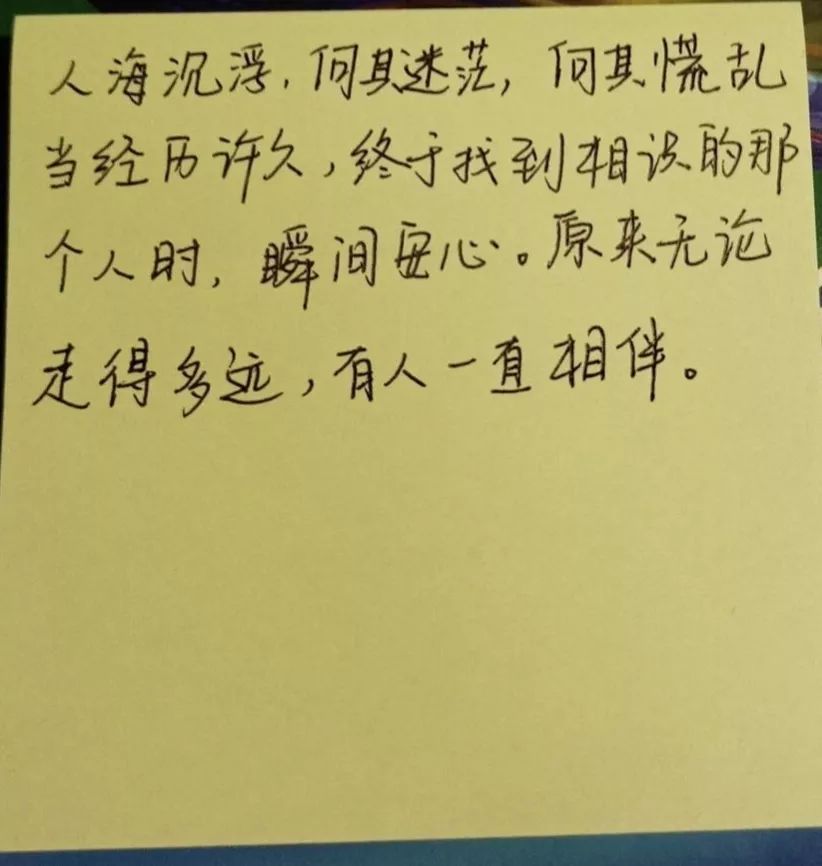 人海沉浮，何其迷茫，何其慌乱
当经历许久，终于找到相识的那
个人时，瞬间安心。原来无论
走得多远，有人一直相伴。